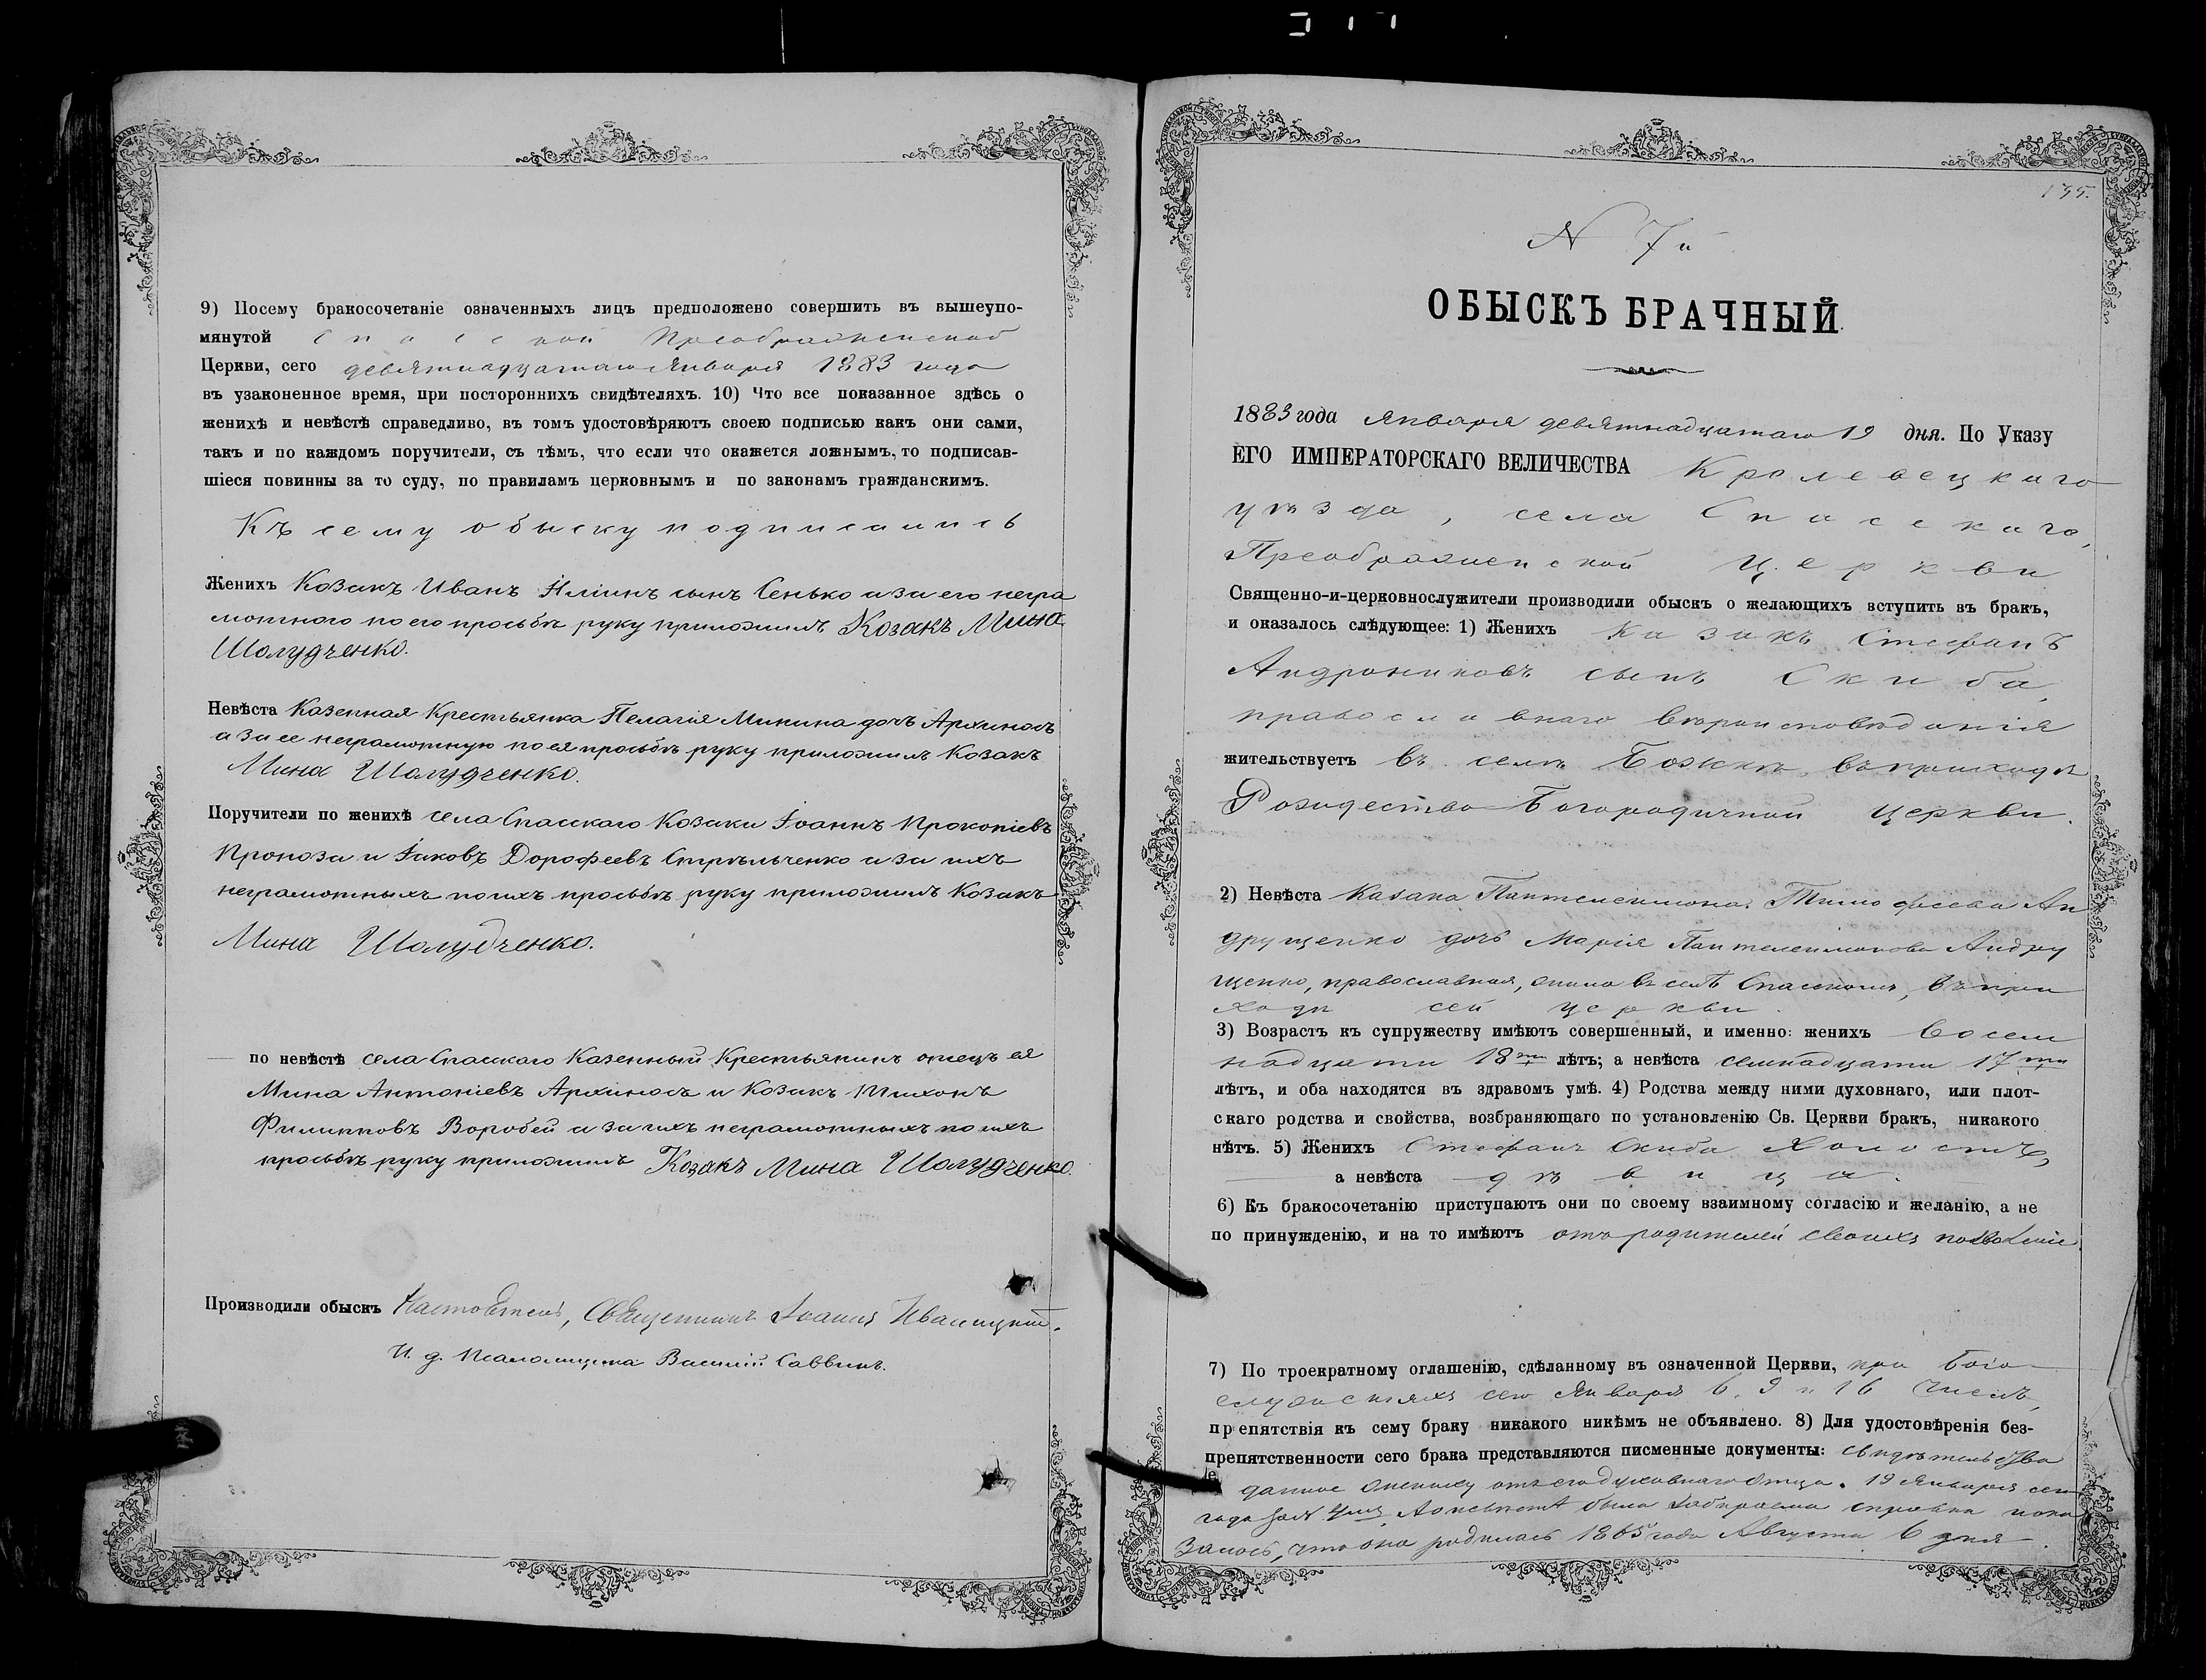 9) Посему бракосочетаніе означенныхъ лицъ предположено совершить въ вышеупо-
мянутой Спасской Преображенской
Церкви, сего девятнадцатаго Января 1883 года
въ узаконенное время, при постороннихъ свидѣтеляхъ. 10) Что все показанное здѣсь о
женихѣ и невѣстѣ справедливо, въ томъ удостовѣряютъ своею подписью какъ они сами,
такъ и по каждомъ поручители, съ тѣмъ, что если что окажется ложнымъ, то подписав-
шіеся повинны за то суду, по правиламъ церковнымъ и по законамъ гражданскимъ.
Къ сему обыску подписались
Женихъ Козакъ Иванъ Иліинъ сынъ Сенько а за его негра
мотного по его просьбѣ руку приложилъ Козакъ Мина
Шолудченко.
Невѣста Казенная Крестьянка Пелагія Минина дочь
а за ее неграмотную по ея просьбѣ руку приложилъ Козакъ
Мина Шолудченко.
Поручители по женихѣ села Спасскаго Козаки Іоаннъ Прокопіевъ
Пропоза и Іаковъ Дорофеевъ Стрѣльченко а за ихъ
неграмотныхъ по ихъ просьбѣ руку приложилъ Козакъ
Мина Шолудченко.
по невѣстѣ села Спасскаго Казенный Крестьянинъ отецъ ея
Мина Антоніевъ и Козакъ Тихонъ
Филипповъ Воробей а за ихъ неграмотныхъ по ихъ
просьбѣ руку приложилъ Козакъ Мина Шолудченко.
Производили обыскъ Настоятель, Священникъ Іоаннъ
И. д. Псаломщика Василій Саввинъ.
195.
N 7й
ОБЫСКЪ БРАЧНЫЙ.
1883 года Января девятнадцатаго 19 дня. По Указу
ЕГО ИМПЕРАТОРСКАГО ВЕЛИЧЕСТВА Кролевецкаго
уѣзда, села Спасскаго,
Преображенской Церкви
Священно-и-церковнослужители производили обыскъ о желающихъ вступить въ бракъ,
и оказалось слѣдующее: 1) Женихъ Казакъ Стефанъ
Андрониковъ сынъ Скиба,
православнаго вѣроисповѣданія
жительствуетъ въ селѣ Божкѣ, въ приходѣ
Рождество Богородичной церкви.
2) Невѣста Казака Пантелеимона Тимофеева Ан
друщенко дочь Марія Пантелеимонова Андру
щенко, православная, жила въ селѣ Спасскомъ, въ при
ходѣ сей церкви.
3) Возрастъ къ супружеству имѣютъ совершенный, и именно: женихъ восем
надцати 18ти лѣтъ; а невѣста семнадцати 17ти
лѣтъ, и оба находятся въ здравомъ умѣ. 4) Родства между ними духовнаго, или плот-
скаго родства и свойства, возбраняющаго по установленію Св. Церкви бракъ, никакого
нѣтъ. 5) Женихъ Стефанъ Скиба холостъ,
а невѣста дѣвица.
6) Къ бракосочетанію приступаютъ они по своему взаимному согласію и желанію, а не
по принужденію, и на то имѣютъ отъ родителей своихъ позволеніе.
7) По троекратному оглашенію, сдѣланному въ означенной Церкви, при Бого
служеніяхъ сего Января 6, 9 и 16 числъ,
препятствія къ сему браку никакого никѣмъ не объявлено. 8) Для удостовѣренія без-
препятственности сего брака представляются писменные документы: свидѣтельство
данное жениху отъ его духовнаго отца. 19 Января сего
года за N А о невѣстѣ была справка пока
залось, что она родилась 1865 года Августа 6 дня.